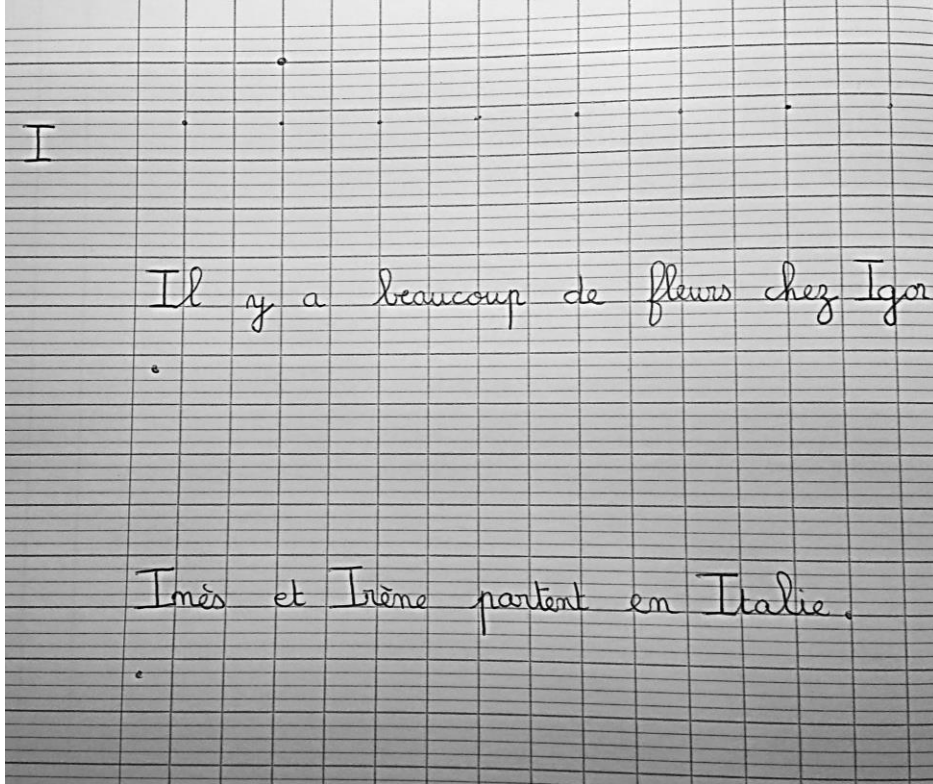 I
Il y a beaucoup de fleurs chez Igor
Inès et Irène partent en Italie.